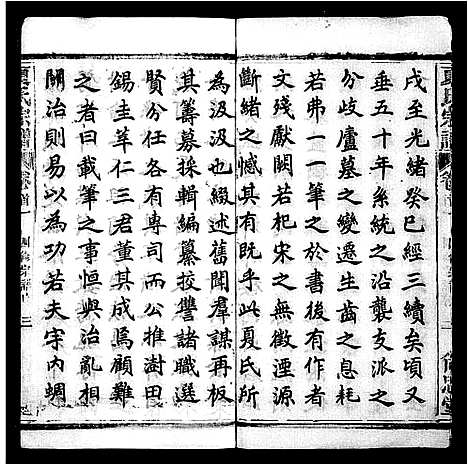 戌至光緒癸巳經三續矣頃又
垂五十年系統之沿襲支派之
分歧廬墓之變遷生齒之息耗
若弗一一筆之於書後有作者
文殘獻闕若杞宋之無徵湮源
斷緒之憾其有既乎此夏氏所
為汲汲也綴述舊聞羣謀再板
其籌募採輯編纂校讐諸職選
賢分任各有專司公推澍田
錫圭莘仁三君董其成焉顧難
之者曰載筆之事恒與治亂相
關治則易以為功若夫宇內蜩
夏氏宗譜 卷首